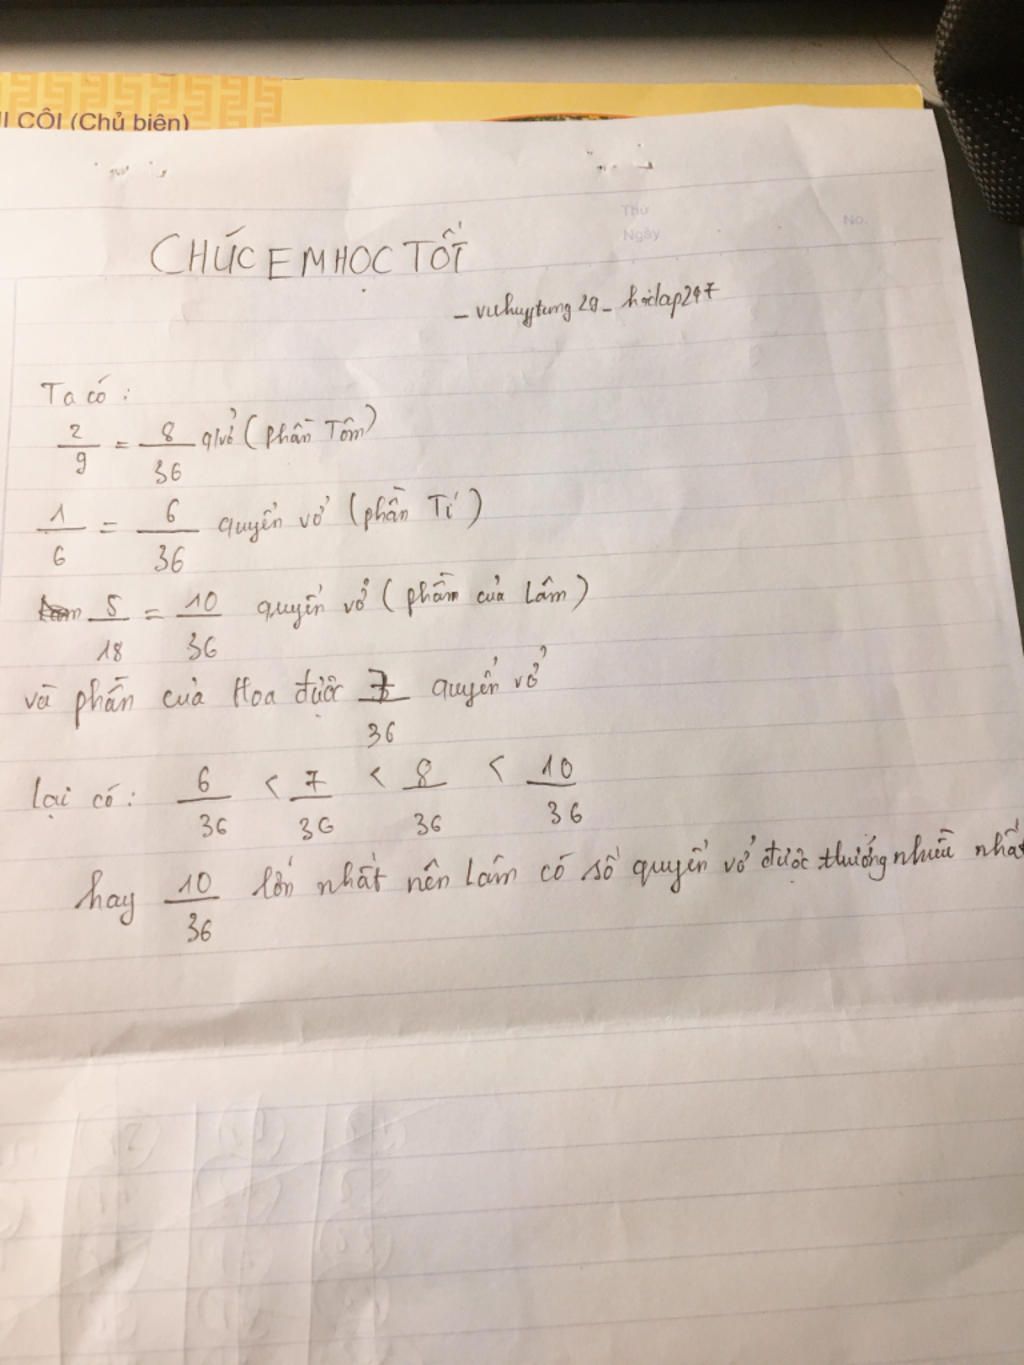 II CÔI (Chủ biên)
Thứ
Ngày
No.
CHÚC EM HỌC TỐT
- vuhuytung 29 - hoidap247
Ta có :
2/9 = 8/36 q/vở (phần Tôm)
1/6 = 6/36 quyển vở (phần Tí)
5/18 = 10/36 quyển vở (phần của Lâm)
và phần của Hoa được 7/36 quyển vở
lại có: 6/36 < 7/36 < 8/36 < 10/36
hay 10/36 lớn nhất nên Lâm có số quyển vở được thưởng nhiều nhất